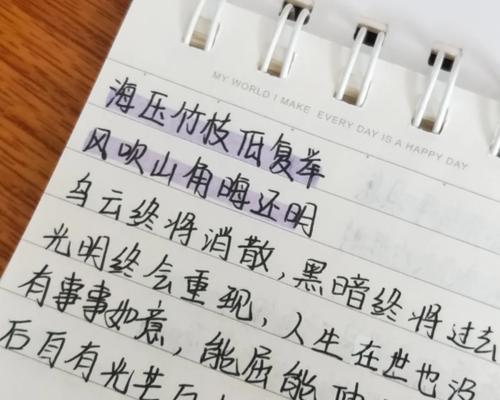 MY WORLD I MAKE EVERY DAY IS A HAPPY DAY
海压竹枝低复举
风吹山角晦还明
乌云终将消散,黑暗终将过去
光明终会重现,人生在世也没
有事事如意,能屈能伸
后自有光芒万